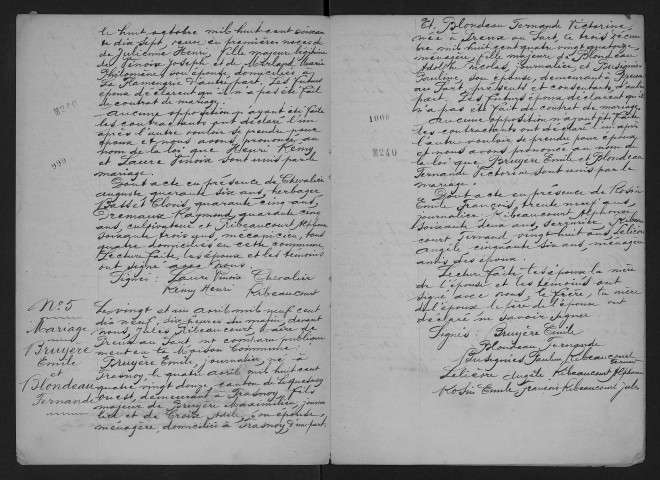 le huit octobre mil huit cent soixan
te dix sept, veuve en premières noces de
de Julienne Henri, fille majeure légitime
de Vinoix Joseph et de Morland Marie
Philomène, son épouse, domiciliés à
La Flamengrie d'autre part. Les futurs
époux déclarent qu'il n'a pas été fait
de contrat de mariage.
Aucune opposition n'ayant été faite
les contractants ont déclaré l'un
après l'autre vouloir se prendre pour
époux et nous avons prononcé au
nom de la loi que Henri Rémy
et Laure Vinoix sont unis par le
mariage.
Dont acte en présence de Chevalier
auguste quarante six ans, herbager
Passet Clovis, quarante cinq ans,
Dremaux Raymond, quarante cinq
ans, cultivateur et Ribeaucourt Alphonse
soixante trois ans, mécanicien, tous
quatre domiciliés en cette commune
Lecture faite, les époux et les témoins
ont signé avec nous.
Signés: Laure Vinoix Chevalier
Rémy Henri Ribeaucourt
M240
999
N° 5
Mariage
Bruyère
Emile
et
Blondeau
Fernande
Le vingt et un avril mil neuf cent
dix neuf, six heures du matin, devant
nous Jules Ribeaucourt, Maire de
Preux au Sart, ont comparu publique
ment en la Maison Commune:
Bruyère Emile, journalier, né à
Frasnoy, le quatre avril mil huit cent
quatre vingt douze, canton de Le Quesnoy
ouest, demeurant à Frasnoy, fils
majeur de Bruyère Maximilien, journa
lier et de Croix Adèle, son épouse,
ménagère, domiciliés à Frasnoy, d'une part,
Et Blondeau Fernande Victorine,
née à Preux au Sart, le trois
bre mil huit cent quatre vingt quatorze,
ménagère, fille majeure de Blondeau
Adolphe Nicolas, journalier et Pusignies
Pauline, son épouse, demeurant à Preux
au Sart, présents et consentants, d'autre
part. Les futurs époux déclarent qu'il
n'a pas été fait de contrat de mariage.
Aucune opposition n'ayant été faite
les contractants ont déclaré l'un après
l'autre vouloir se prendre pour époux,
et nous avons prononcé au nom de
la loi que Bruyère Emile et Blondeau
Fernande Victorine sont unis par le
mariage.
Dont acte en présence de Rosin
Emile François, trente neuf ans,
journalier, Ribeaucourt Alphonse,
soixante deux ans, Ribeau
court Fernand, vingt huit ans, Lelièvre
Angèle cinquante six ans, ménagère
amis des époux.
Lecture faite, les époux la mère
de l'épouse et les témoins ont
signé avec nous, le père, la mère
de l'époux, le père de l'épouse ont
déclaré ne savoir signer
Signés: Bruyère Emile
Blondeau Fernande
Pusignies Pauline Ribeaucourt Fernand
Lelièvre Angèle Ribeaucourt Alphonse
Rosin Emile François Ribeaucourt Jules
1000
M240